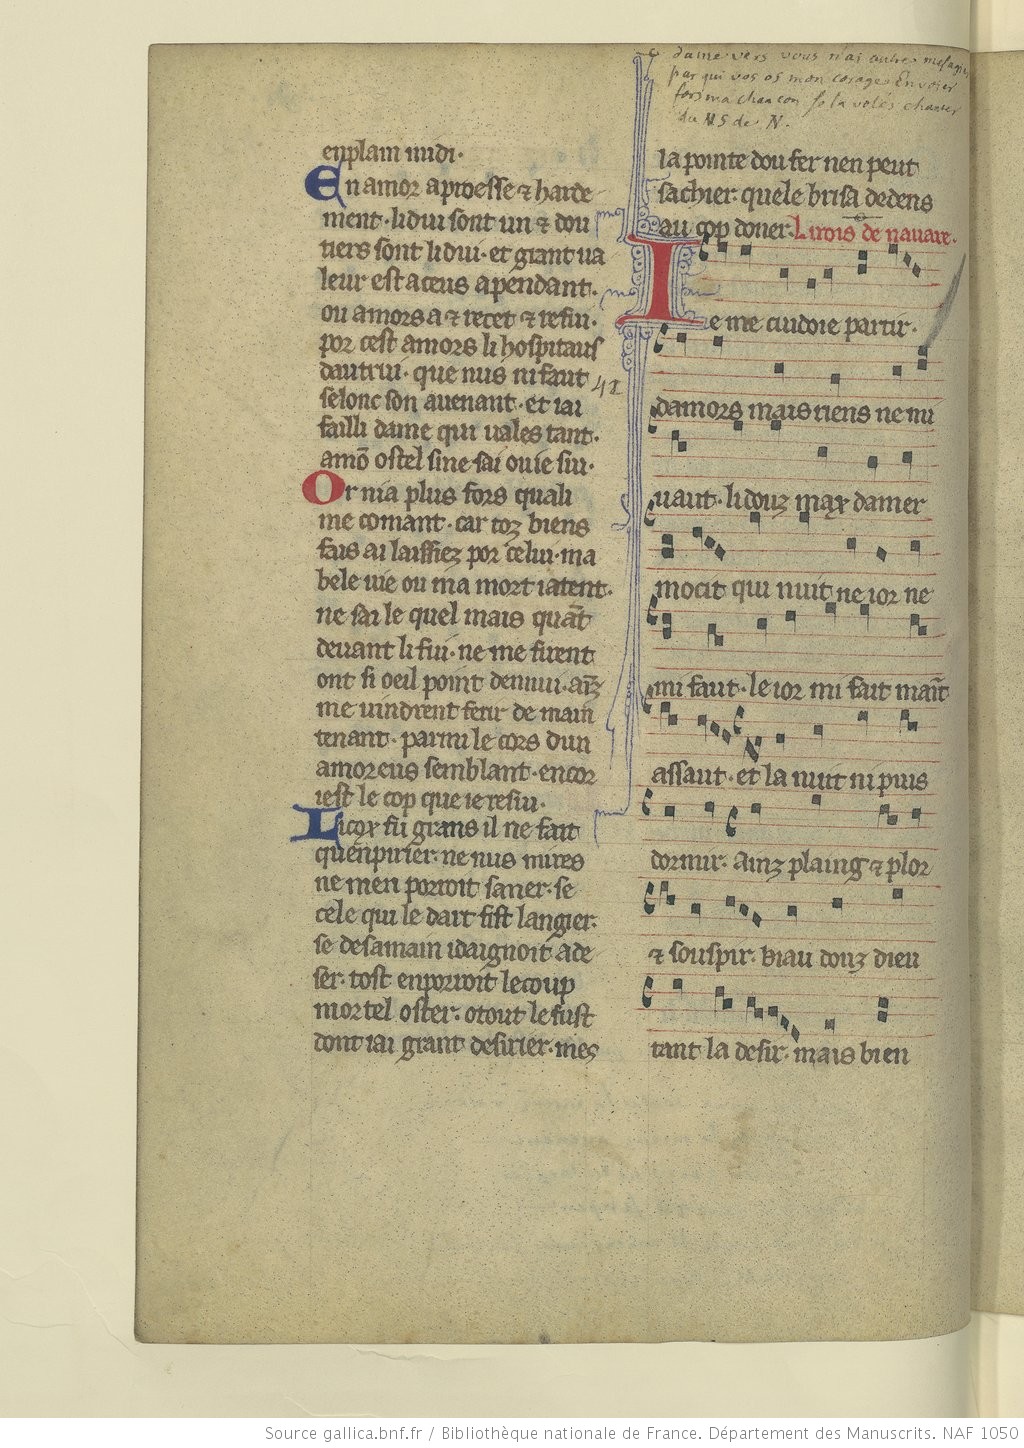 dame vers vous n'ai autre mesagier
par qui vos os mon corage Envoier
fors ma chancon se la volés chanter
du MS de N.
enplain midi·
En amor a proesse ⁊ harde
ment· li dui sont un ⁊ dou
tiers sont li dui· et grant ua
leur est a ceus apendant·
ou amors a ⁊ recet ⁊ refui·
por cest amors li hospitaus
dautrui· que nus ni faut
selonc son auenant· et iai
failli dame qui uales tant·
amō ostel si ne sai ou ie sui·
Or ni a plus fors qua li
me comant· car toz biens
fais ai laissiez por celui· ma
bele uie ou ma mort iatent·
ne sai le quel mais quāt
deuant li fui· ne me firent
ont si oeil point dennui· aīz
me uindrent ferir de main
tenant· parmi le cors dun
amoreus semblant· encor
iest le cop que ie resui·
Li cox fu grans il ne fait
quenpirier· ne nus mires
ne men porroit saner· se
cele qui le dart fist langier·
se de sa main i daignoit ade
ser· tost en porroit le coup
mortel oster· o tout le fust
dont iai grant desirier· mes
41
la pointe dou fer nen peut
sachier· quele brisa dedens
au cop doner· Li rois de nauare·
Ie me cuidoie partir·
damors mais riens ne mi
uaut· li douz max damer
mocit qui nuit ne ior ne
mi faut· le ior mi fait maīt
assaut· et la nuit ni puis
dormir· ainz plaing ⁊ plor
⁊ souspir· biau douz dieu
tant la desir· mais bien
Source gallica.bnf.fr / Bibliothèque nationale de France. Département des Manuscrits. NAF 1050